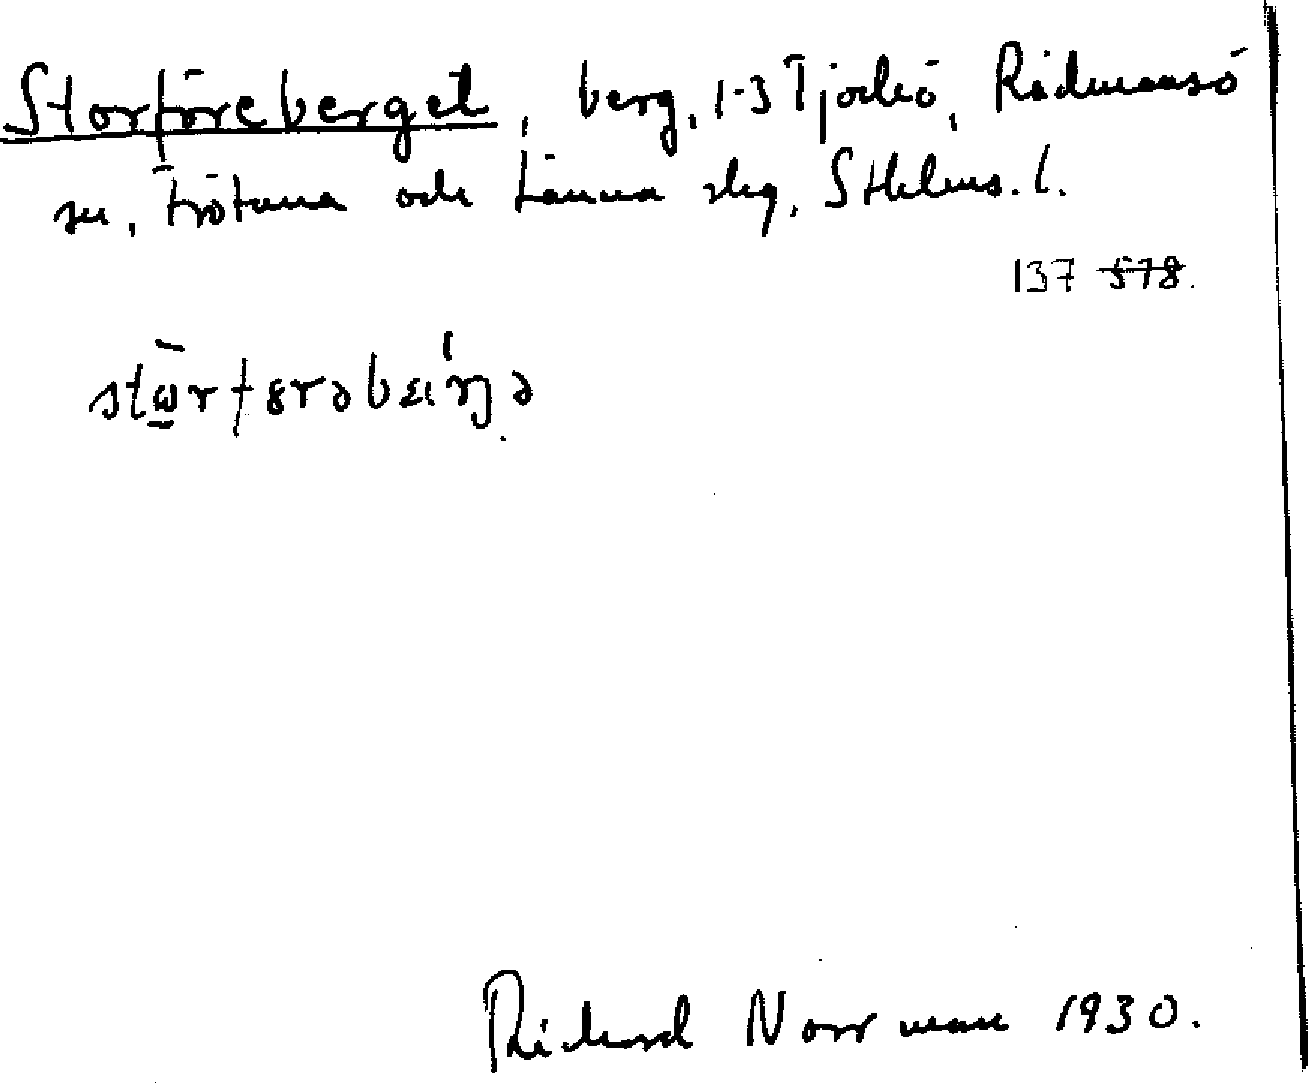 Storföreberget, berg, 1-3 Tjockö, Rådmansö
sn, Frötuna och Länna slg, Sthlms. l.
137 578.
Richard Norrman 1930.